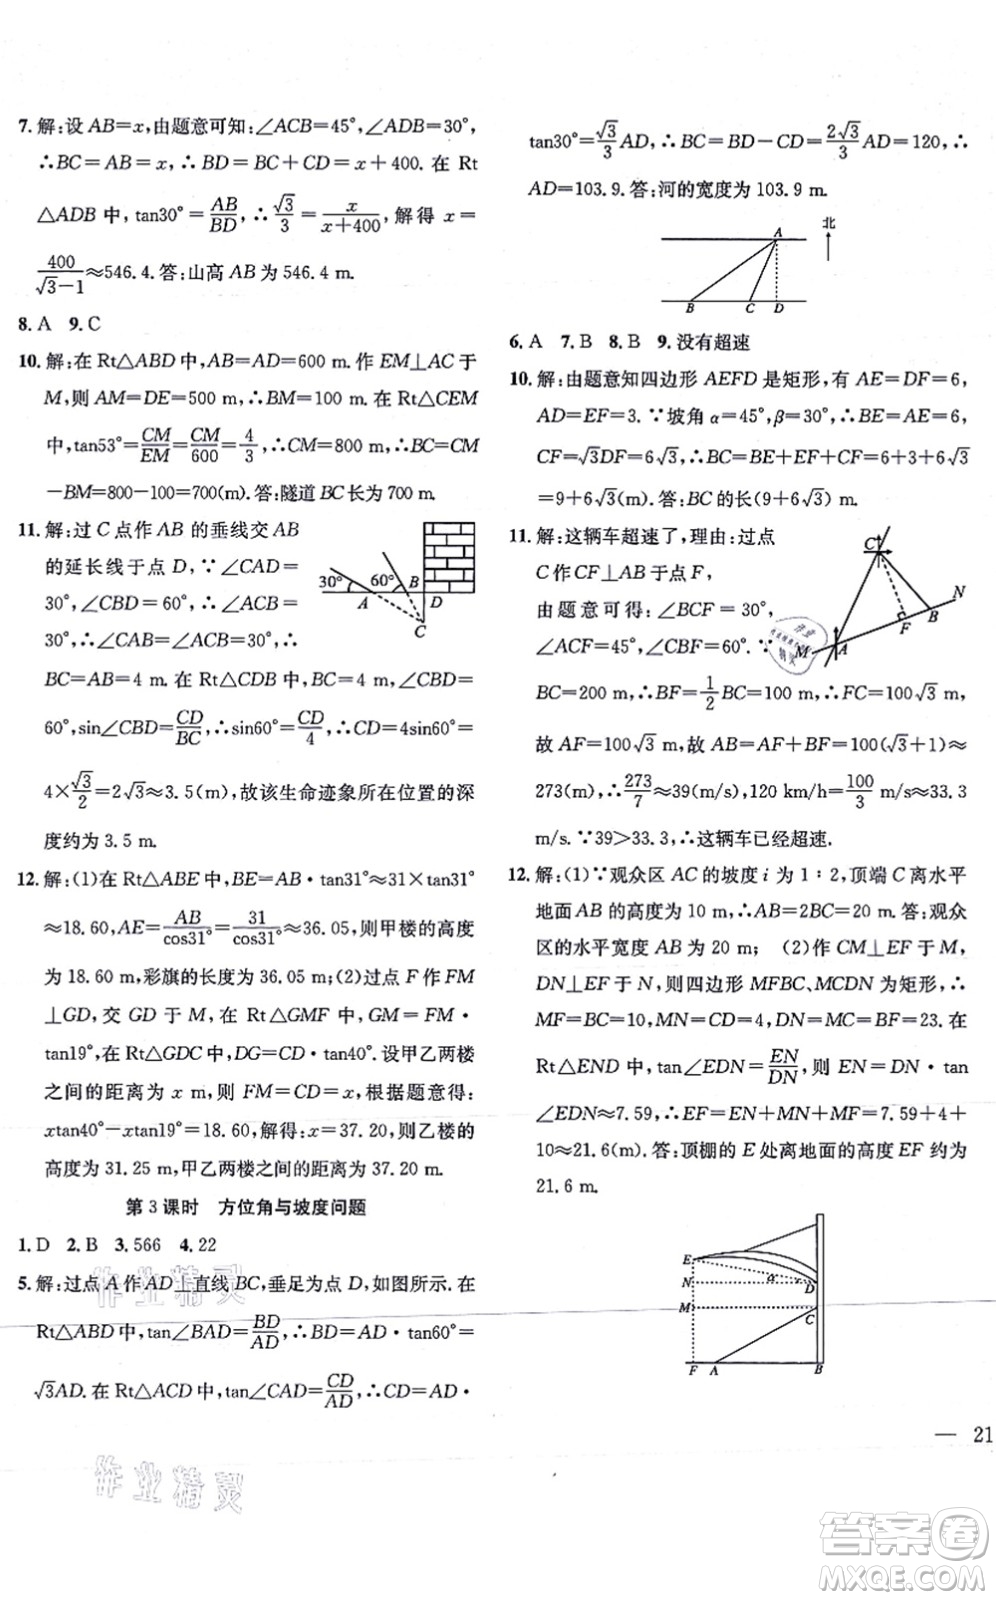 7. 解:设 AB=x,由题意可知:∠ACB=45°,∠ADB=30°,
∴BC=AB=x,∴BD=BC+CD=x+400. 在 Rt
△ADB 中,tan30°=AB/BD,∴√3/3=x/(x+400),解得 x=
400/(√3-1)≈546.4. 答:山高 AB 为 546.4 m.
8. A 9. C
10. 解:在 Rt△ABD 中,AB=AD=600 m. 作 EM⊥AC 于
M,则 AM=DE=500 m,∴BM=100 m. 在 Rt△CEM
中,tan53°=CM/EM=CM/600=4/3,∴CM=800 m,∴BC=CM
-BM=800-100=700(m). 答:隧道 BC 长为 700 m.
11. 解:过 C 点作 AB 的垂线交 AB
的延长线于点 D,∵∠CAD=
30°,∠CBD=60°,∴∠ACB=
30°,∴∠CAB=∠ACB=30°,∴
BC=AB=4 m. 在 Rt△CDB 中,∠CBD=
60°,sin∠CBD=CD/BC,∴sin60°=CD/4,∴CD=4sin60°=
4×√3/2=2√3≈3.5(m),故该生命迹象所在位置的深
度约为 3.5 m.
30° 60° A B D C
12. 解:(1)在 Rt△ABE 中,BE=AB·tan31°=31×tan31°
≈18.60,AE=AB/cos31°=31/cos31°≈36.05,则甲楼的高度
为 18.60 m,彩旗的长度为 36.05 m;(2)过点 F 作 FM
⊥GD,交 GD 于 M,在 Rt△GMF 中,GM=FM·
tan19°,在 Rt△GDC 中,DG=CD·tan40°. 设甲乙两楼
之间的距离为 x m,则 FM=CD=x,根据题意得:
xtan40°-xtan19°=18.60,解得:x=37.20,则乙楼的
高度为 31.25 m,甲乙两楼之间的距离为 37.20 m.
第 3 课时 方位角与坡度问题
1. D 2. B 3. 566 4. 22
5. 解:过点 A 作 AD⊥直线 BC,垂足为点 D,如图所示. 在
Rt△ABD 中,tan∠BAD=BD/AD,∴BD=AD·tan60°=
√3AD. 在 Rt△ACD 中,tan∠CAD=CD/AD,∴CD=AD·
作业精灵
作业精灵
tan30°=√3/3AD,∴BC=BD-CD=2√3/3AD=120,∴
AD=103.9. 答:河的宽度为 103.9 m.
A 北 B C D
6. A 7. B 8. B 9. 没有超速
10. 解:由题意知四边形 AEFD 是矩形,有 AE=DF=6,
AD=EF=3. ∵坡角 α=45°,β=30°,∴BE=AE=6,
CF=√3DF=6√3,∴BC=BE+EF+CF=6+3+6√3
=9+6√3(m). 答:BC 的长(9+6√3)m.
11. 解:这辆车超速了,理由:过点
C 作 CF⊥AB 于点 F,
由题意可得:∠BCF=30°,
∠ACF=45°,∠CBF=60°. ∵
BC=200 m,∴BF=1/2BC=100 m,∴FC=100√3 m,
故 AF=100√3 m,故 AB=AF+BF=100(√3+1)≈
273(m),∴273/7=39(m/s),120 km/h=100/3 m/s≈33.3
m/s. ∵39>33.3,∴这辆车已经超速.
C N B F A M
12. 解:(1)∵观众区 AC 的坡度 i 为 1∶2,顶端 C 离水平
地面 AB 的高度为 10 m,∴AB=2BC=20 m. 答:观众
区的水平宽度 AB 为 20 m;(2)作 CM⊥EF 于 M,
DN⊥EF 于 N,则四边形 MFBC、MCDN 为矩形,∴
MF=BC=10,MN=CD=4,DN=MC=BF=23. 在
Rt△END 中,tan∠EDN=EN/DN,则 EN=DN·tan
∠EDN≈7.59,∴EF=EN+MN+MF=7.59+4+
10≈21.6(m). 答:顶棚的 E 处离地面的高度 EF 约为
21.6 m.
E N M F A B C D α
— 21
答案卷
MXQE.COM